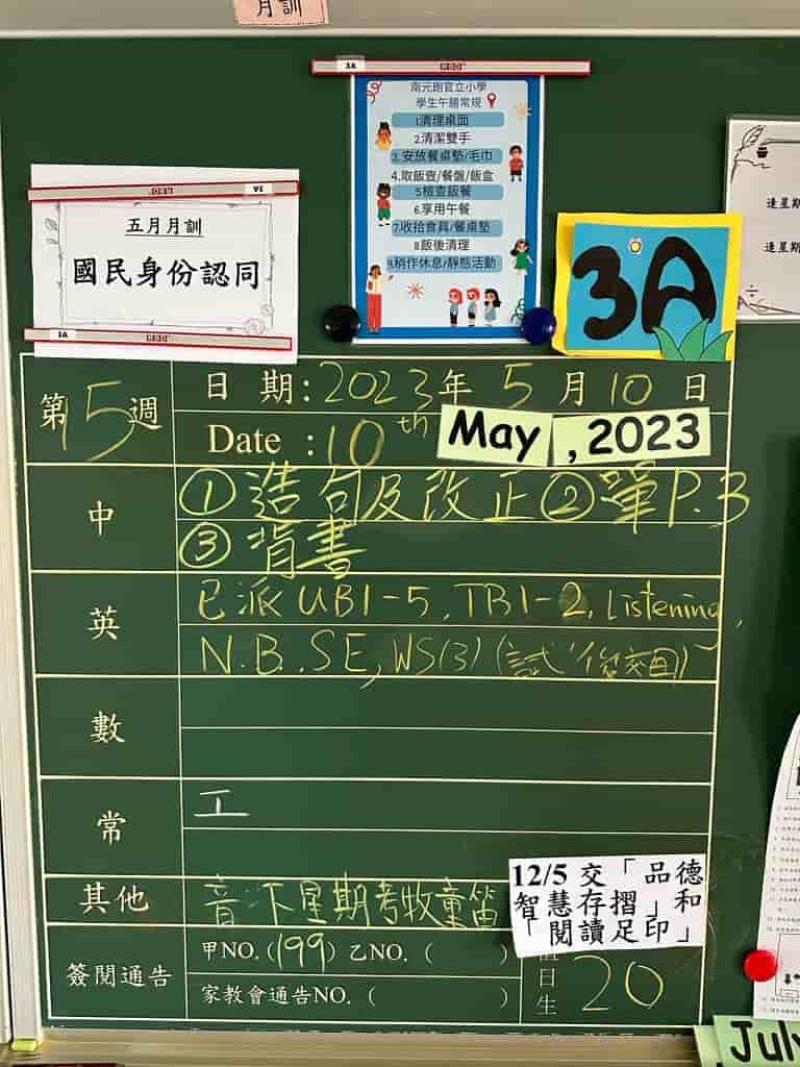 月訓
3A
南元朗官立小學
學生午膳常規
1.清理桌面
2.清潔雙手
3.安放餐桌墊/毛巾
4.取飯壺/餐盤/飯盒
5檢查飯餐
6.享用午餐
7.收拾食具/餐桌墊
8飯後清理
9.稍作休息/靜態活動
五月月訓
國民身份認同
3A
3A
逢星期
逢星期
第15週
日 期:2023年 5 月 10 日
Date :10th May , 2023
中
①造句及改正②單P.3
③背書
英
已派UB1-5, TB1-2, Listening,
N.B., SE, WS(3)
數
常
工
其他
音:下星期考牧童笛
12/5 交「品德
智慧存摺」和
「閱讀足印」
簽閱通告
甲NO.(199) 乙NO. ( )
家教會通告NO. ( )
日生
20
July